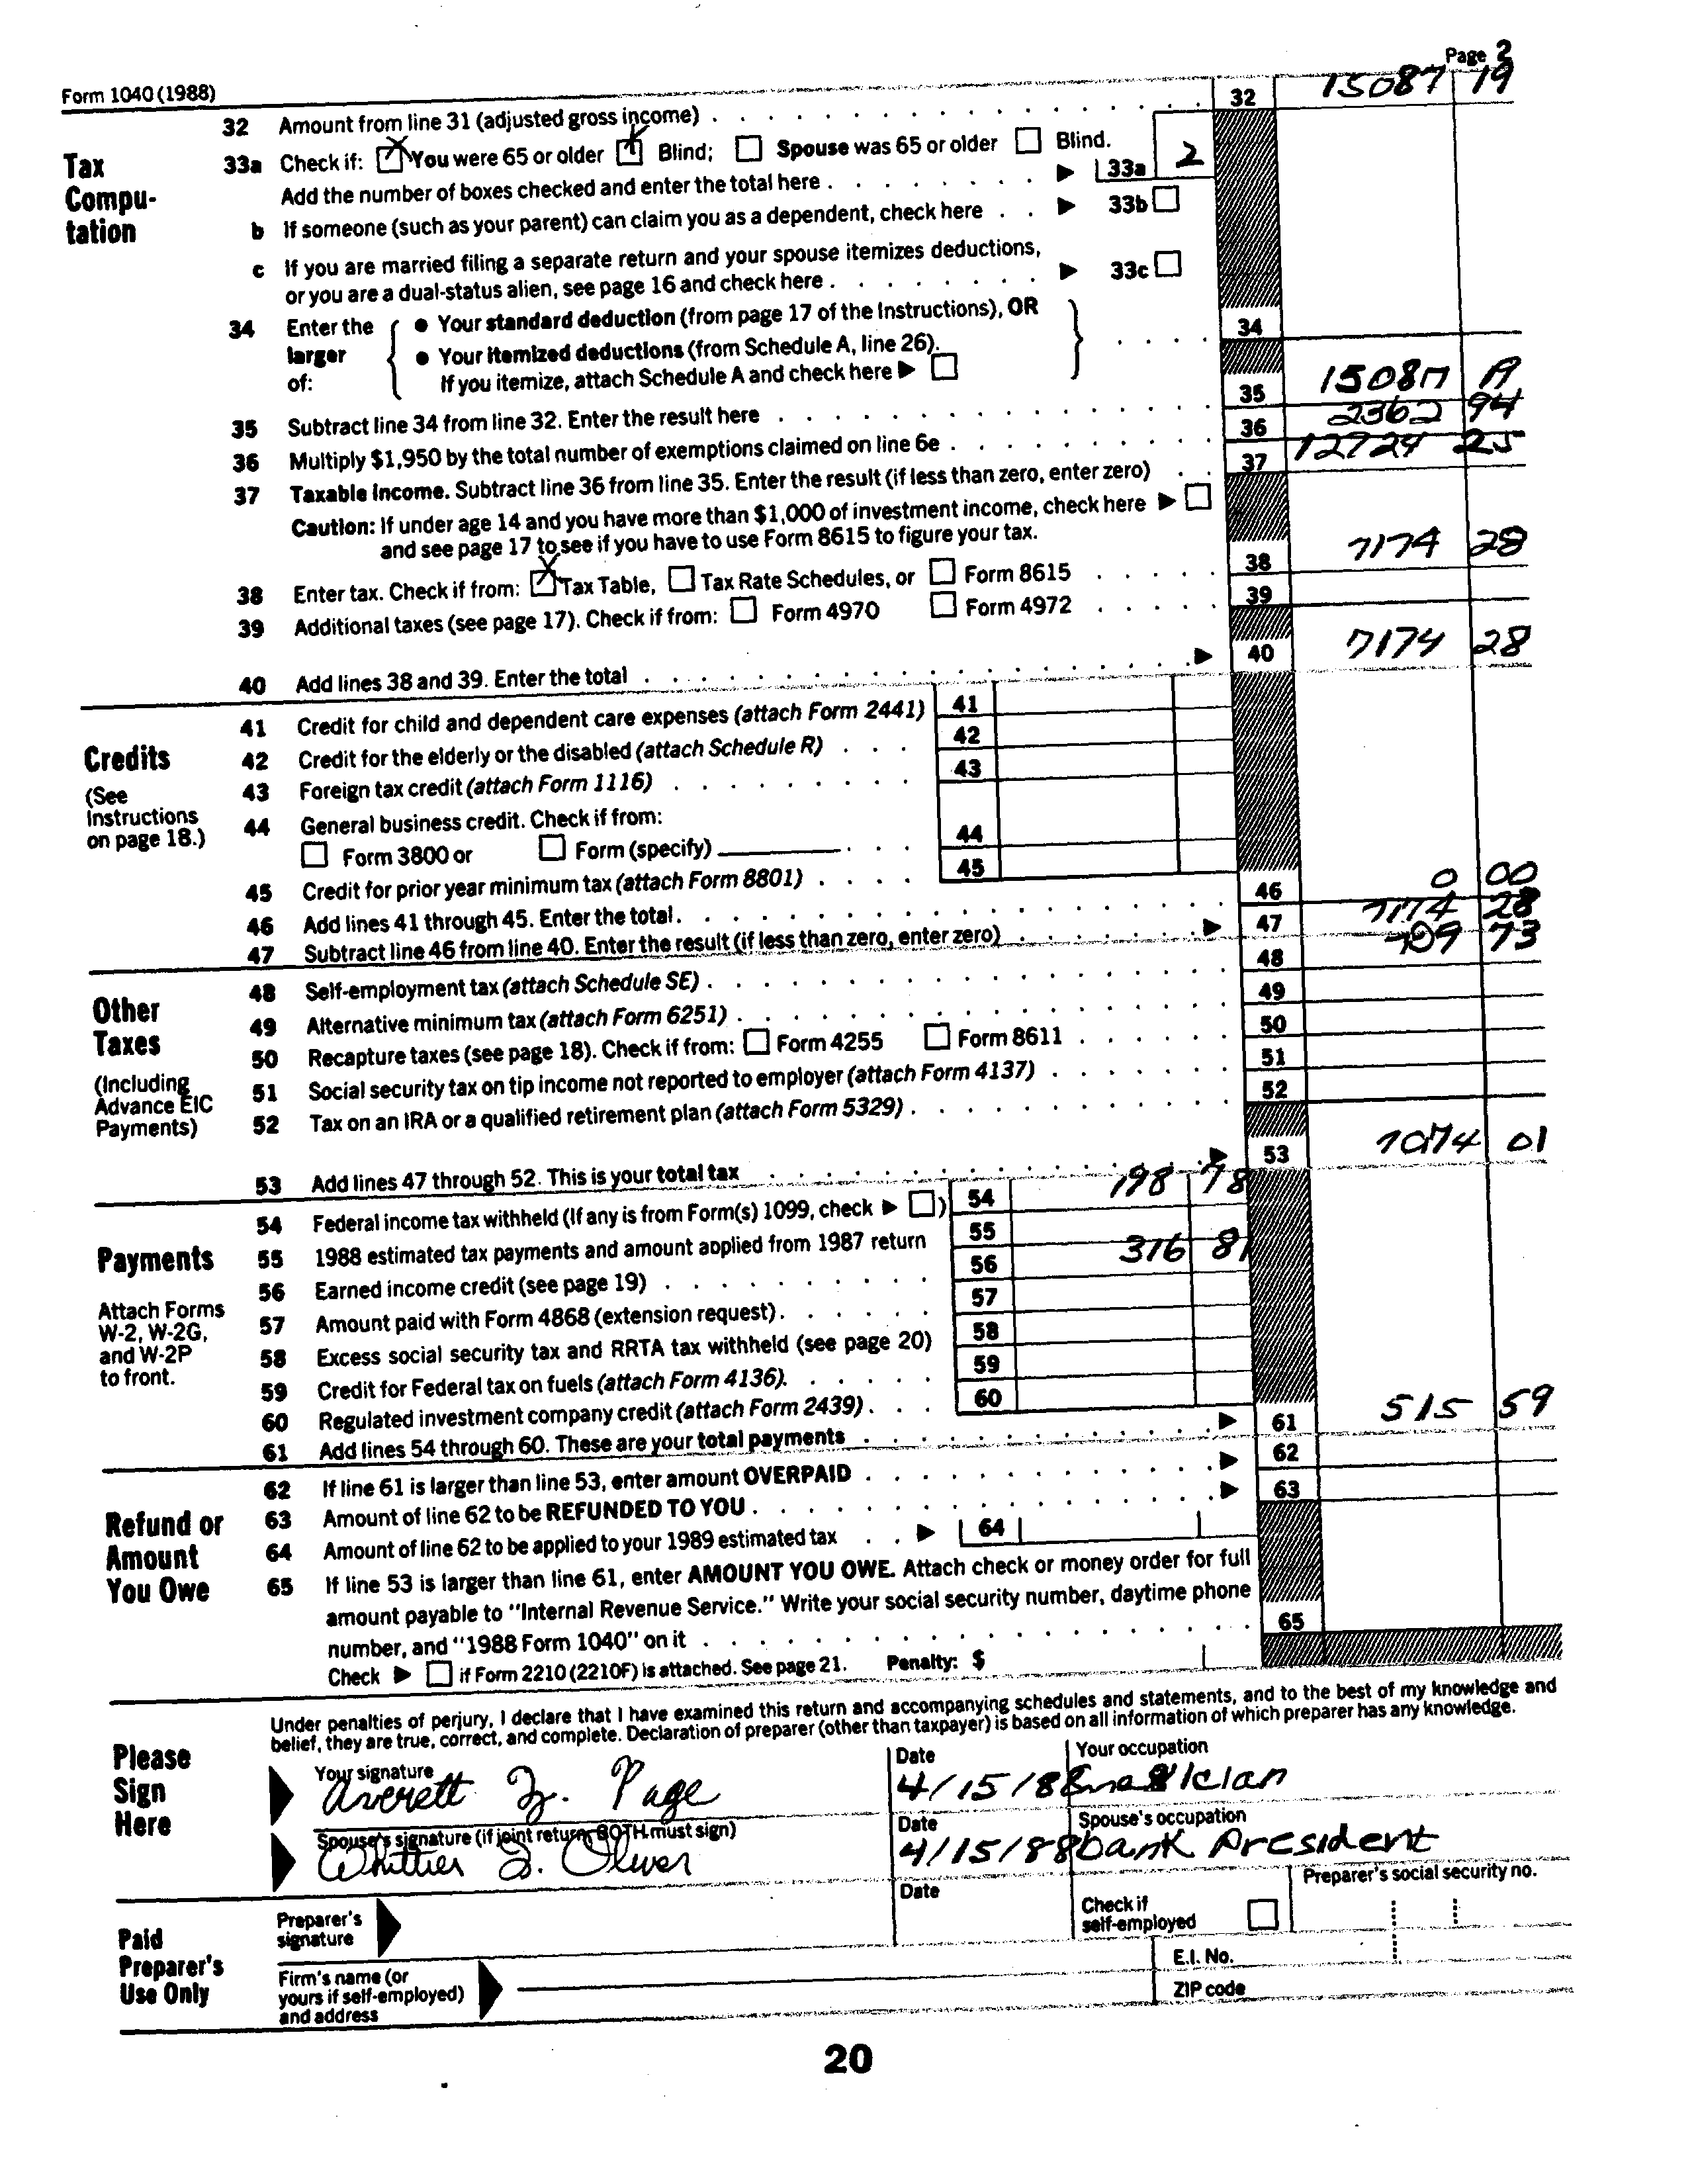 Form 1040 (1988)
Page 2
32 Amount from line 31 (adjusted gross income) 32 15087 19
Tax Computation
33a Check if: X You were 65 or older X Blind; Spouse was 65 or older Blind.
Add the number of boxes checked and enter the total here ▶ 33a 2
b If someone (such as your parent) can claim you as a dependent, check here ▶ 33b
c If you are married filing a separate return and your spouse itemizes deductions,
or you are a dual-status alien, see page 16 and check here ▶ 33c
34 Enter the larger of: ● Your standard deduction (from page 17 of the Instructions), OR
● Your itemized deductions (from Schedule A, line 26).
If you itemize, attach Schedule A and check here ▶ 34
35 Subtract line 34 from line 32. Enter the result here 35 15087 19
36 Multiply $1,950 by the total number of exemptions claimed on line 6e 36 2362 94
37 Taxable income. Subtract line 36 from line 35. Enter the result (if less than zero, enter zero) 37 12724 25
Caution: If under age 14 and you have more than $1,000 of investment income, check here ▶
and see page 17 to see if you have to use Form 8615 to figure your tax.
38 Enter tax. Check if from: X Tax Table, Tax Rate Schedules, or Form 8615 38 7174 28
39 Additional taxes (see page 17). Check if from: Form 4970 Form 4972 39
40 Add lines 38 and 39. Enter the total ▶ 40 7174 28
Credits
(See Instructions on page 18.)
41 Credit for child and dependent care expenses (attach Form 2441) 41
42 Credit for the elderly or the disabled (attach Schedule R) 42
43 Foreign tax credit (attach Form 1116) 43
44 General business credit. Check if from:
Form 3800 or Form (specify) 44
45 Credit for prior year minimum tax (attach Form 8801) 45
46 Add lines 41 through 45. Enter the total 46 0 00
47 Subtract line 46 from line 40. Enter the result (if less than zero, enter zero) ▶ 47 7174 28
Other Taxes
(Including Advance EIC Payments)
48 Self-employment tax (attach Schedule SE) 48 709 73
49 Alternative minimum tax (attach Form 6251) 49
50 Recapture taxes (see page 18). Check if from: Form 4255 Form 8611 50
51 Social security tax on tip income not reported to employer (attach Form 4137) 51
52 Tax on an IRA or a qualified retirement plan (attach Form 5329) 52
53 Add lines 47 through 52. This is your total tax ▶ 53 7074 01
Payments
Attach Forms W-2, W-2G, and W-2P to front.
54 Federal income tax withheld (If any is from Form(s) 1099, check ▶ ) 54 198 78
55 1988 estimated tax payments and amount applied from 1987 return 55
56 Earned income credit (see page 19) 56 316 81
57 Amount paid with Form 4868 (extension request) 57
58 Excess social security tax and RRTA tax withheld (see page 20) 58
59 Credit for Federal tax on fuels (attach Form 4136) 59
60 Regulated investment company credit (attach Form 2439) 60
61 Add lines 54 through 60. These are your total payments ▶ 61 515 59
Refund or Amount You Owe
62 If line 61 is larger than line 53, enter amount OVERPAID ▶ 62
63 Amount of line 62 to be REFUNDED TO YOU ▶ 63
64 Amount of line 62 to be applied to your 1989 estimated tax ▶ 64
65 If line 53 is larger than line 61, enter AMOUNT YOU OWE. Attach check or money order for full
amount payable to "Internal Revenue Service." Write your social security number, daytime phone
number, and "1988 Form 1040" on it 65
Check ▶ if Form 2210 (2210F) is attached. See page 21. Penalty: $
Please Sign Here
Under penalties of perjury, I declare that I have examined this return and accompanying schedules and statements, and to the best of my knowledge and
belief, they are true, correct, and complete. Declaration of preparer (other than taxpayer) is based on all information of which preparer has any knowledge.
Your signature Date Your occupation
Averett Page 4/15/88 magician
Spouse's signature (if joint return, BOTH must sign) Date Spouse's occupation
Whittier Oliver 4/15/88 bank President
Paid Preparer's Use Only
Preparer's signature Date Check if self-employed Preparer's social security no.
Firm's name (or yours if self-employed) and address E.I. No.
ZIP code
20